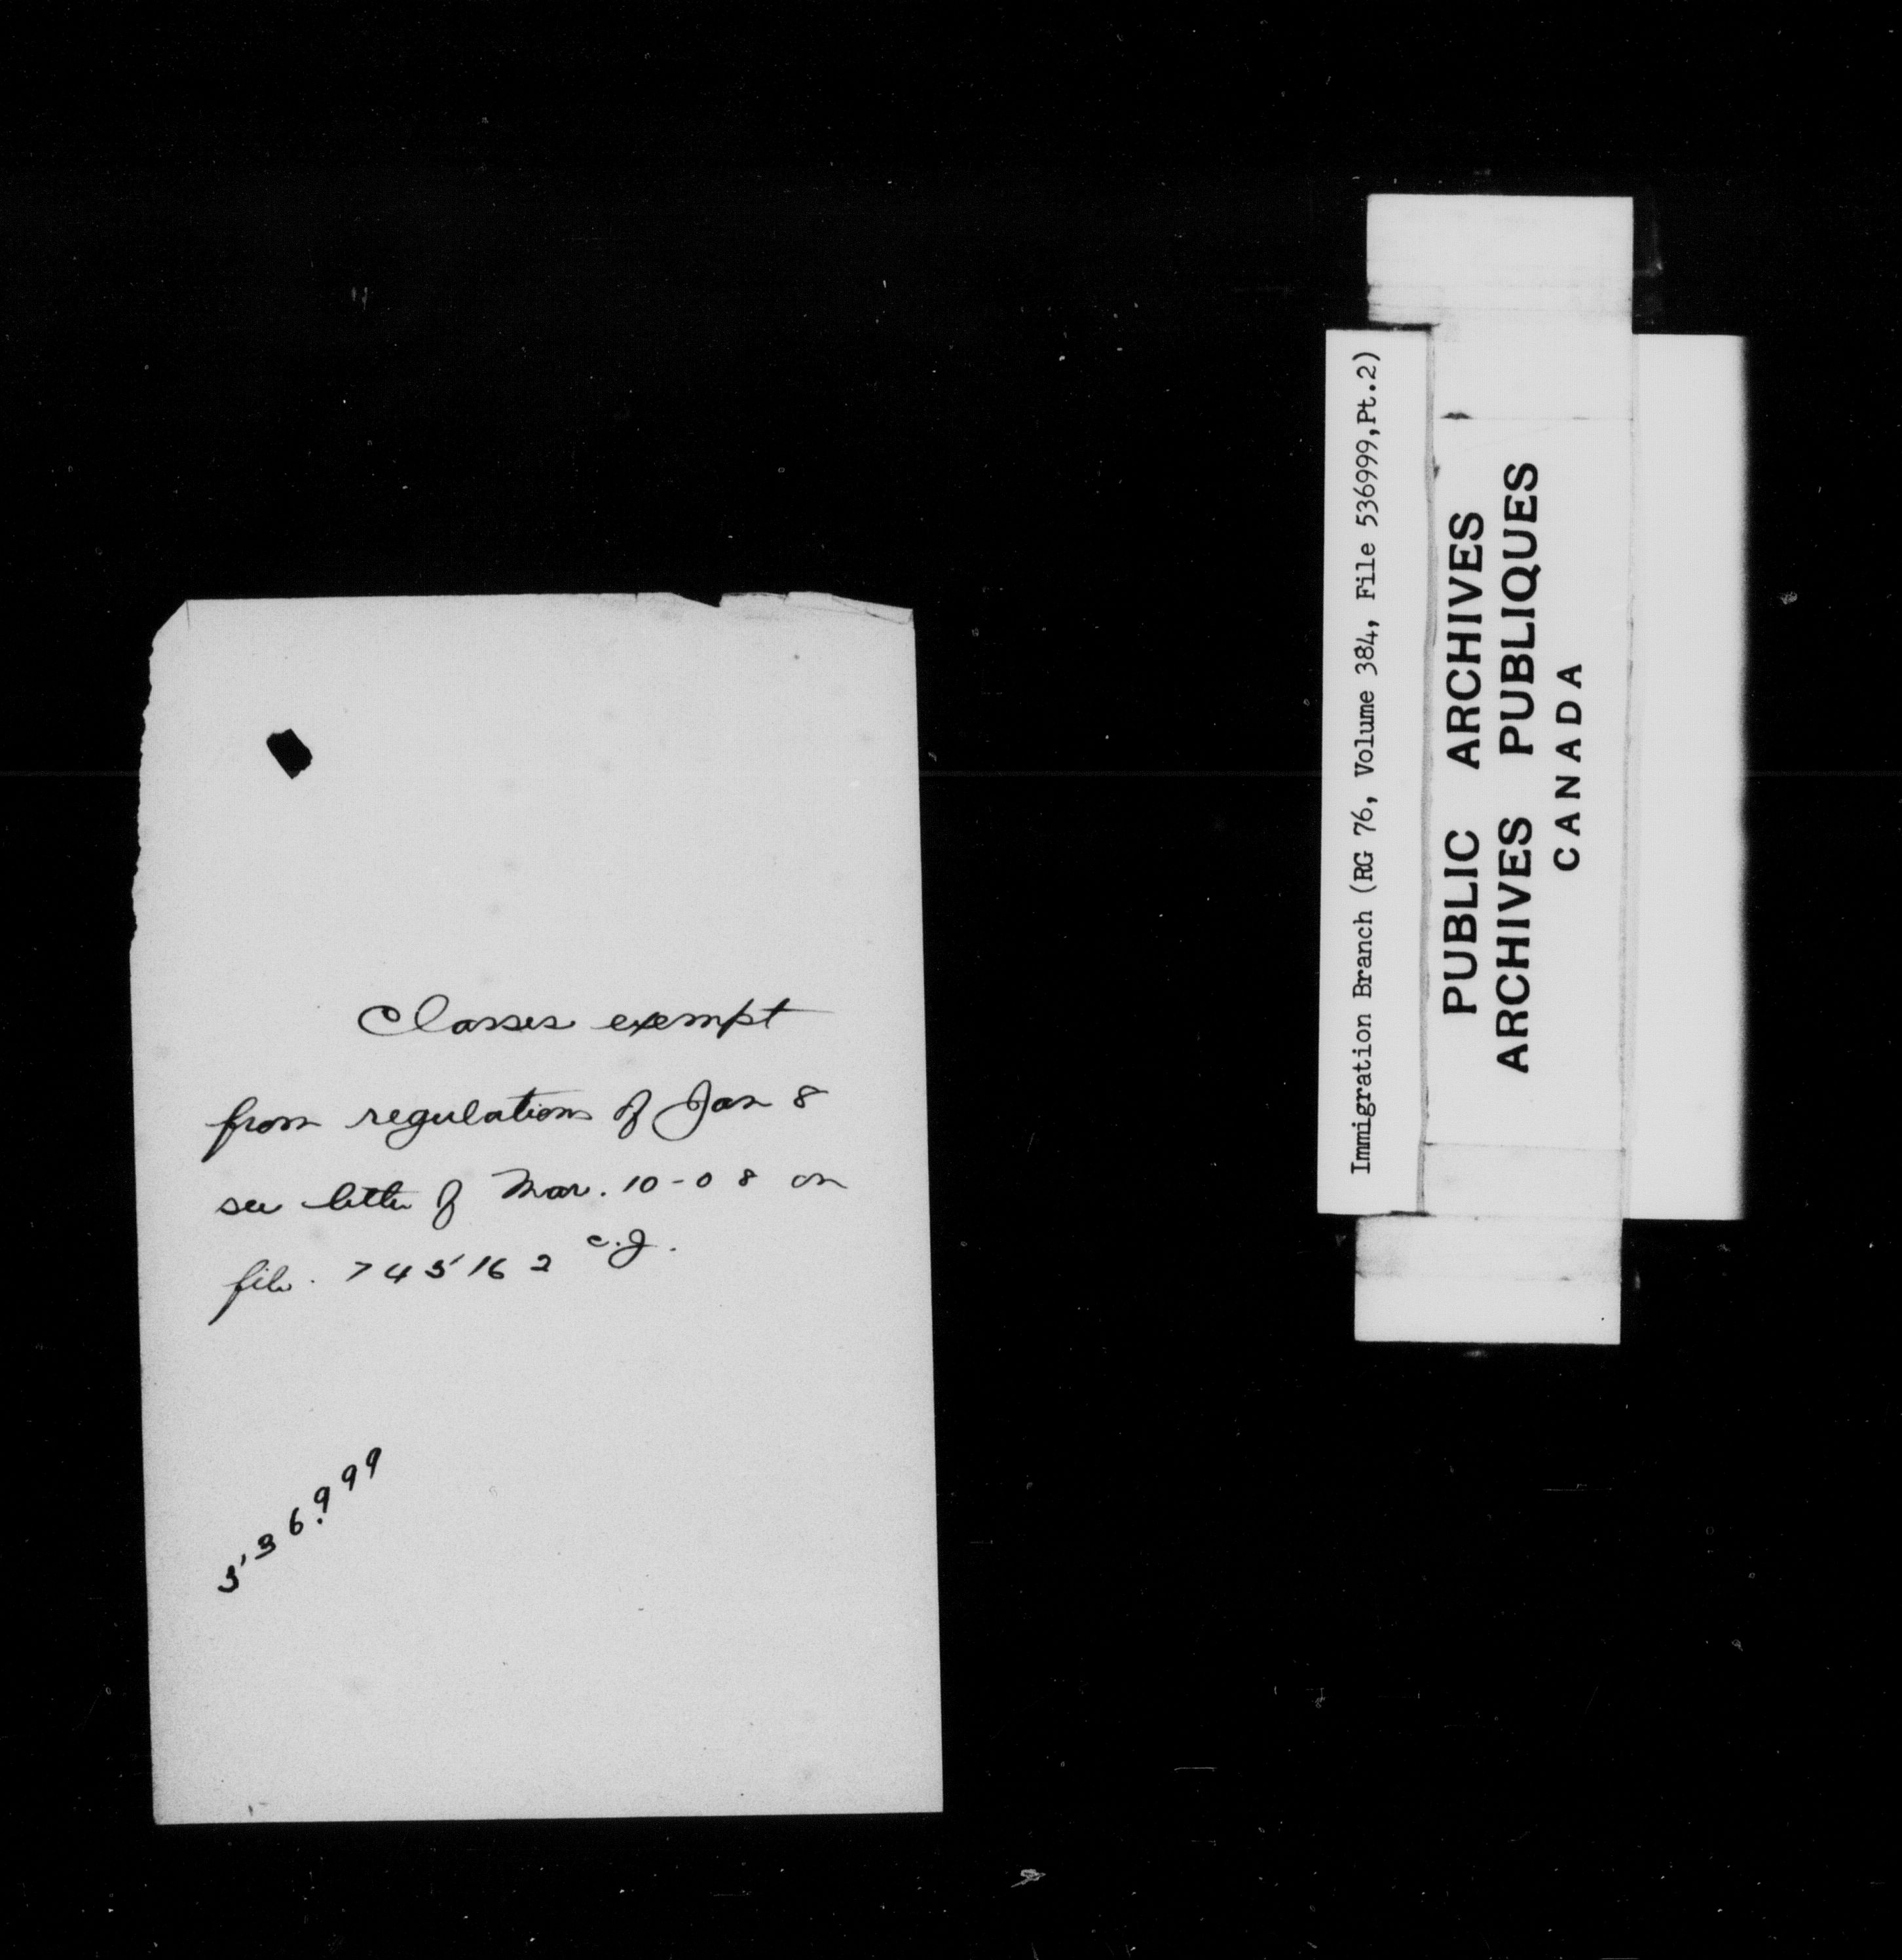 Classes exempt
from regulations of Jan 8
see letter of Mar. 10-08 on
file. 745162 C.J.
536,999
Immigration Branch (RG 76, Volume 384, File 536999,Pt.2)
PUBLIC ARCHIVES
ARCHIVES PUBLIQUES
CANADA